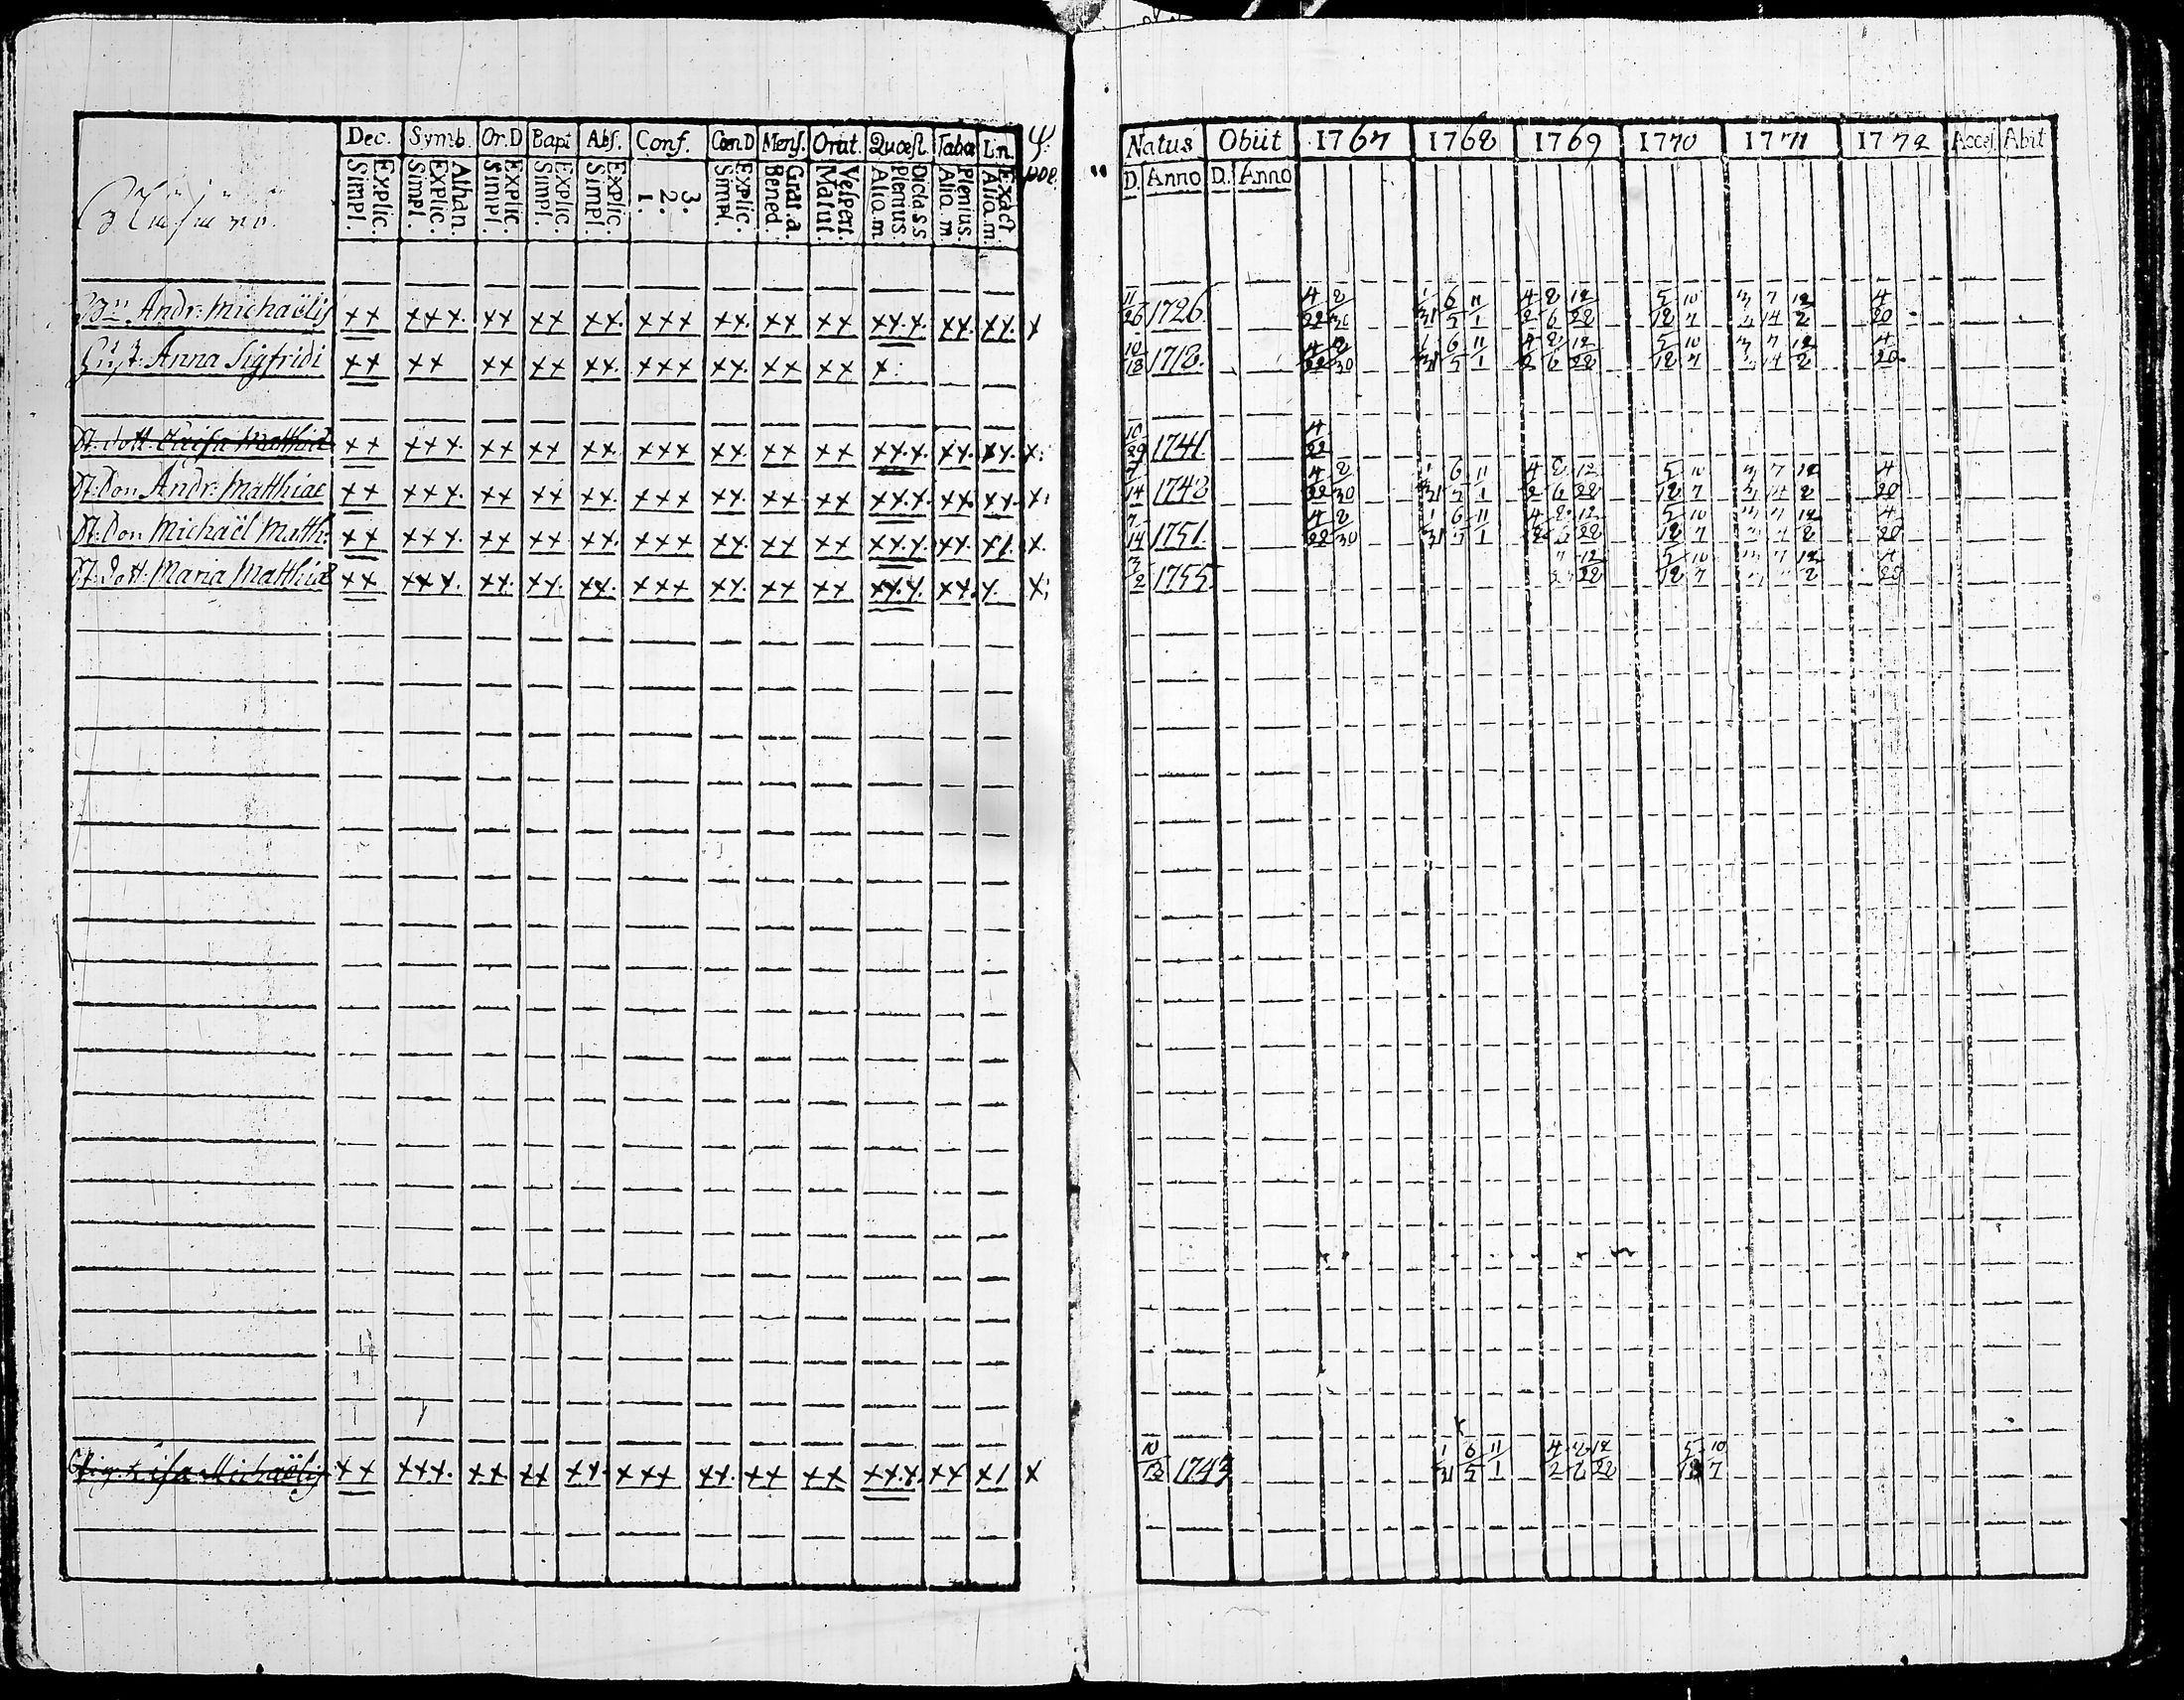 Dec. Symb. Or.D Bapt Abs. Conf. CœnD Mens. Orat. Quæst. Taba Ln. ψ.
Explic. Simpl. Athan. Explic. Simpl. Explic. Simpl. Explic. Simpl. Explic. Simpl. 3. 2. 1. Explic. Simpl. Grat. a. Bened. Vespert. Matut. Dicta S S. Plenius. Alio. m Plenius. Alia. m. Exact Alia. m. poe.
Natus Obiit 1767 1768 1769 1770 1771 1772 Acces. Abit
D. Anno D. Anno
Andr: Michaëlis ×× ××× ×× ×× ×× ××× ×× ×× ×× ××× ×× ×× × 11/26 1726. 4/22 8/30 1/31 6/5 11/1 4/2 8/6 12/28 5/18 10/7 3/3 7/14 12/2 4/20
Anna Sigfridi ×× ×× ×× ×× ×× ××× ×× ×× ×× × 10/18 1718. 4/22 8/30 1/31 6/5 11/1 4/2 8/6 12/28 5/18 10/7 3/3 7/14 12/2 4/20
St. dott. Matthiæ ×× ××× ×× ×× ×× ××× ×× ×× ×× ××× ×× ×× × 10/29 1741. 4/22
St: Son Andr: Matthiae ×× ××× ×× ×× ×× ××× ×× ×× ×× ××× ×× ×× × 1748 4/22 8/30 1/31 6/5 11/1 4/2 8/6 12/28 5/18 10/7 3/3 7/14 12/2 4/20
St: Son Michaël Matth: ×× ××× ×× ×× ×× ××× ×× ×× ×× ××× ×× ×1 × 1751. 4/22 8/30 1/31 6/5 11/1 4/2 8/6 12/28 5/18 10/7 3/3 7/14 12/2 4/20
St: dott: Maria Matthiæ ×× ××× ×× ×× ×× ××× ×× ×× ×× ××× ×× × × 3/2 1755. 12/28 5/18 10/7 7/14 12/2 4/20
Michaëlis ×× ××× ×× ×× ×× ××× ×× ×× ×× ××× ×× ×1 × 10/12 1743 1/31 6/5 11/1 4/2 8/6 12/28 5/18 10/7